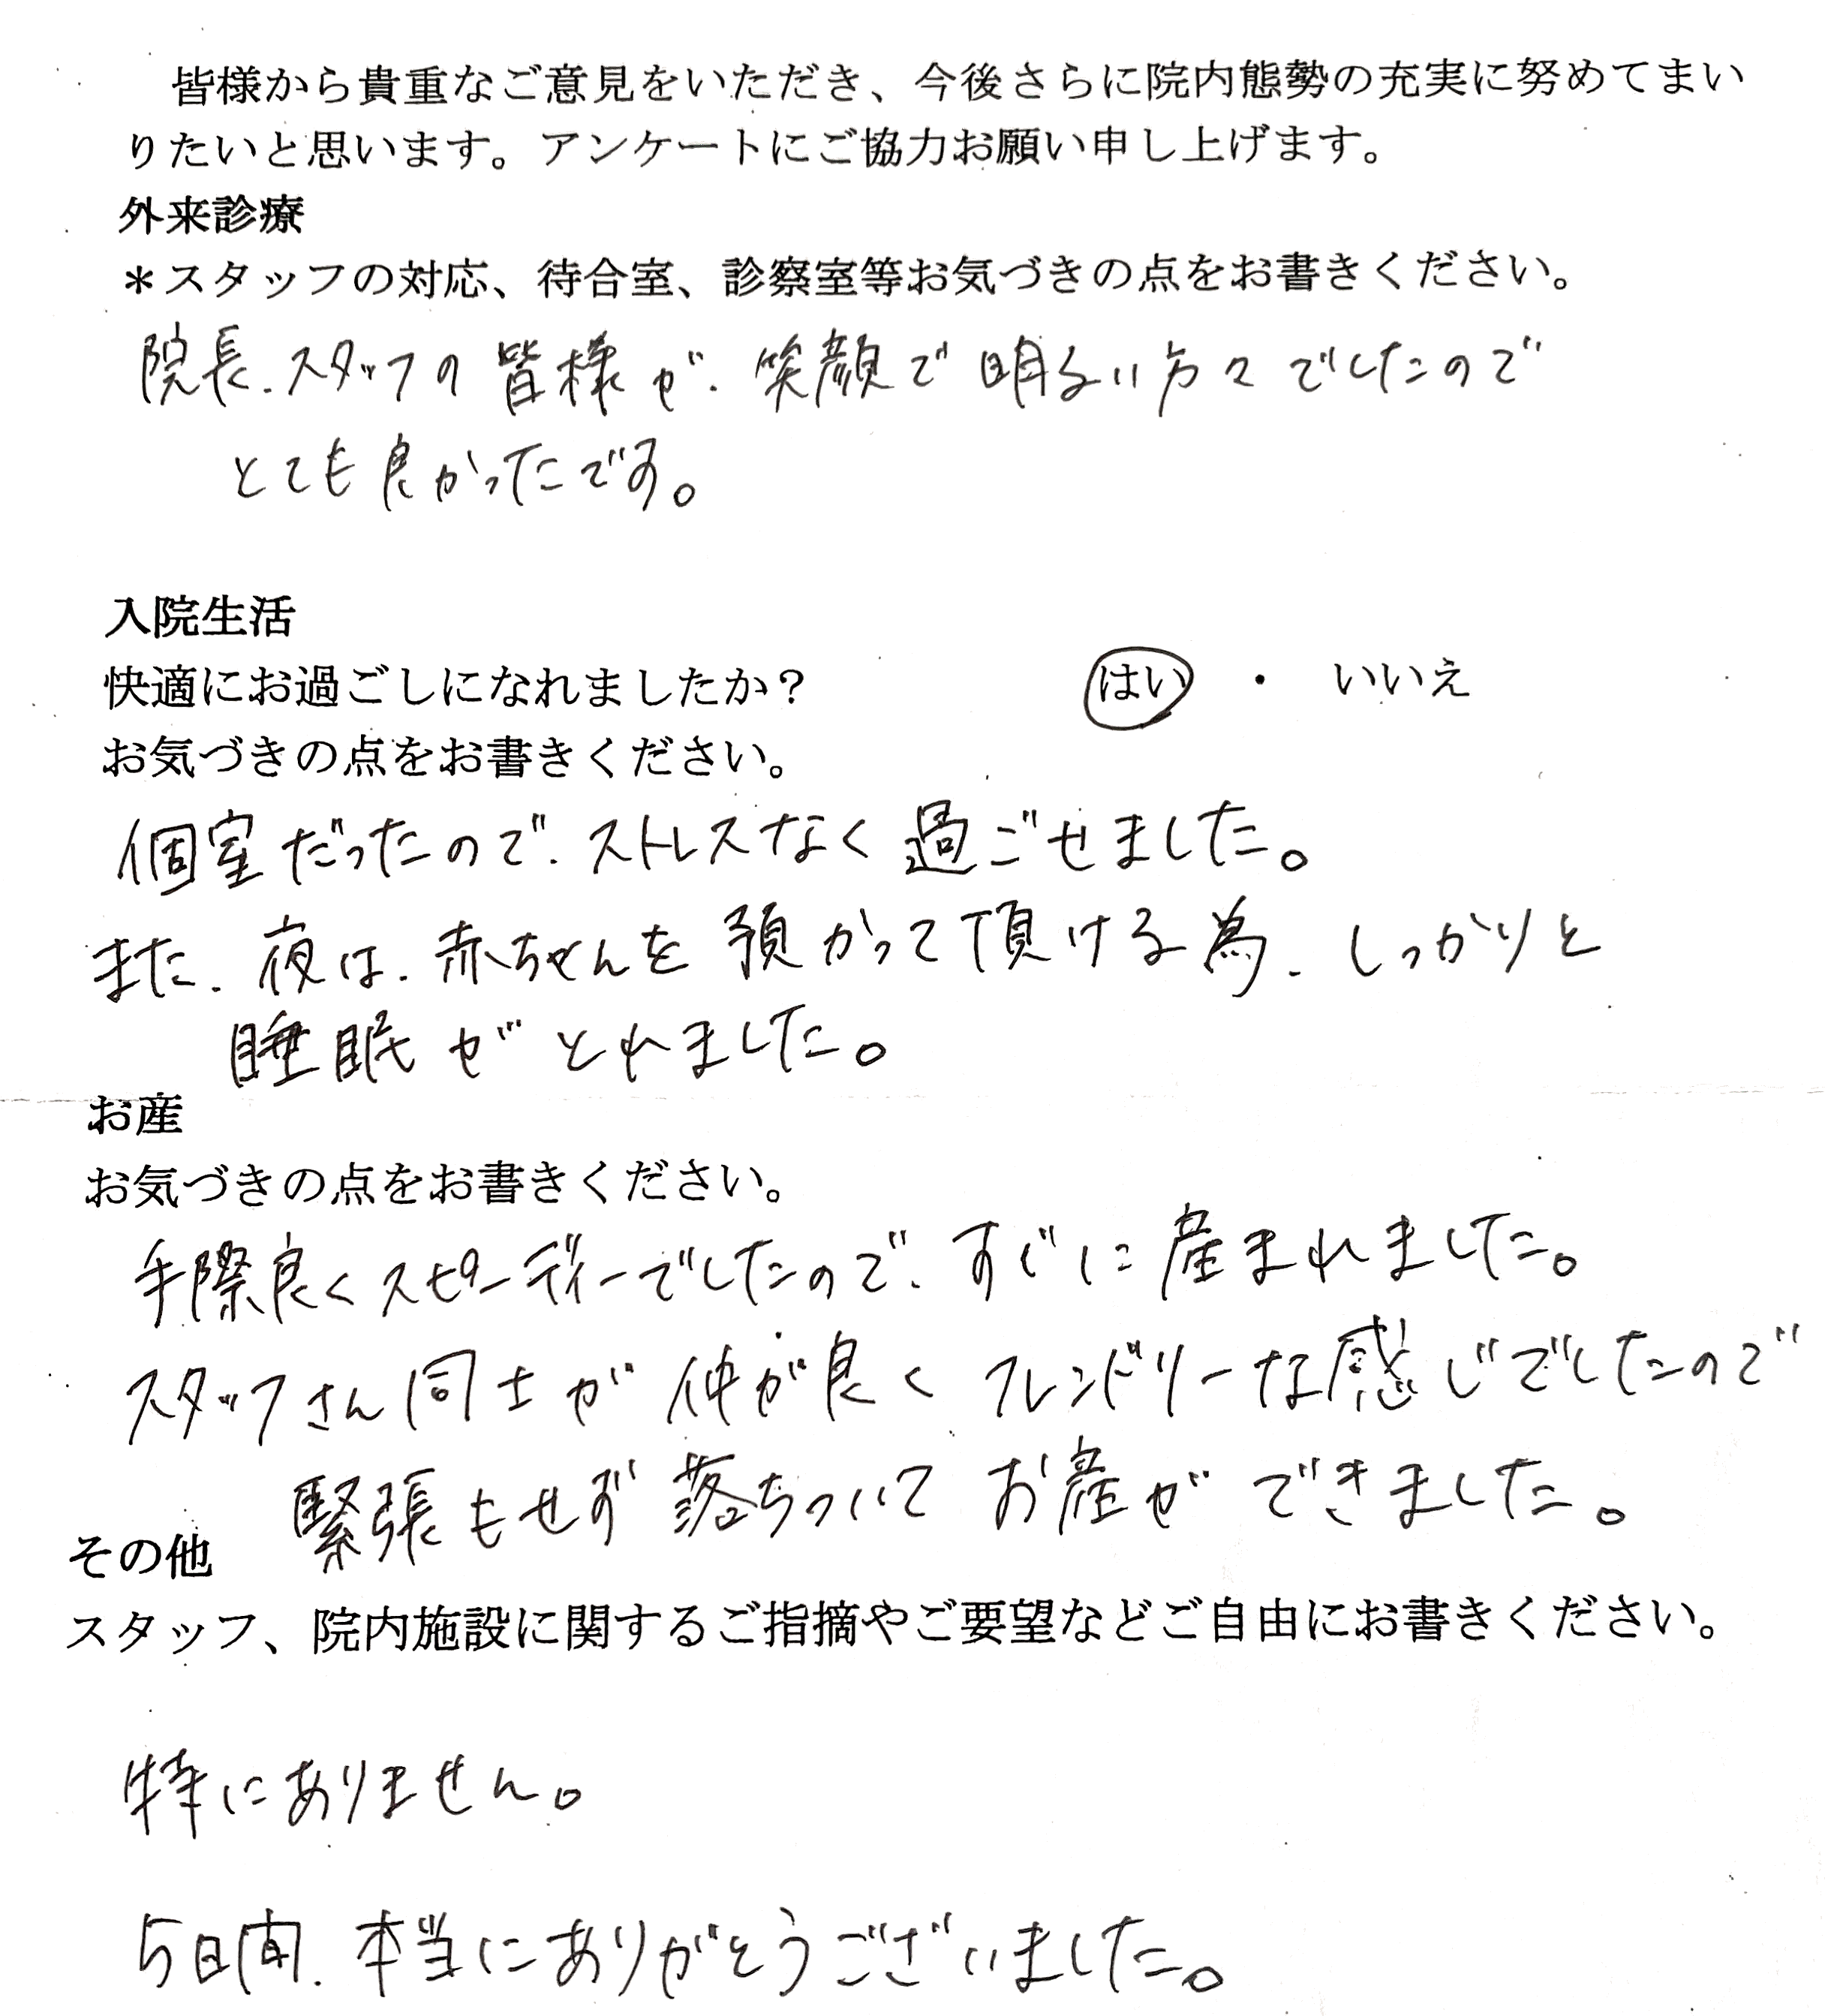 皆様から貴重なご意見をいただき、今後さらに院内態勢の充実に努めてまい
りたいと思います。アンケートにご協力お願い申し上げます。
外来診療
＊スタッフの対応、待合室、診察室等お気づきの点をお書きください。
院長、スタッフの皆様が、笑顔で明るい方々でしたので
とても良かったです。
入院生活
快適にお過ごしになれましたか？ はい ・ いいえ
お気づきの点をお書きください。
個室だったので、ストレスなく過ごせました。
また、夜は、赤ちゃんを預かって頂ける為、しっかりと
睡眠がとれました。
お産
お気づきの点をお書きください。
手際良くスピーディーでしたので、すぐに産まれました。
スタッフさん同士が仲が良くフレンドリーな感じでしたので
緊張もせず落ちついてお産ができました。
その他
スタッフ、院内施設に関するご指摘やご要望などご自由にお書きください。
特にありません。
5日間、本当にありがとうございました。